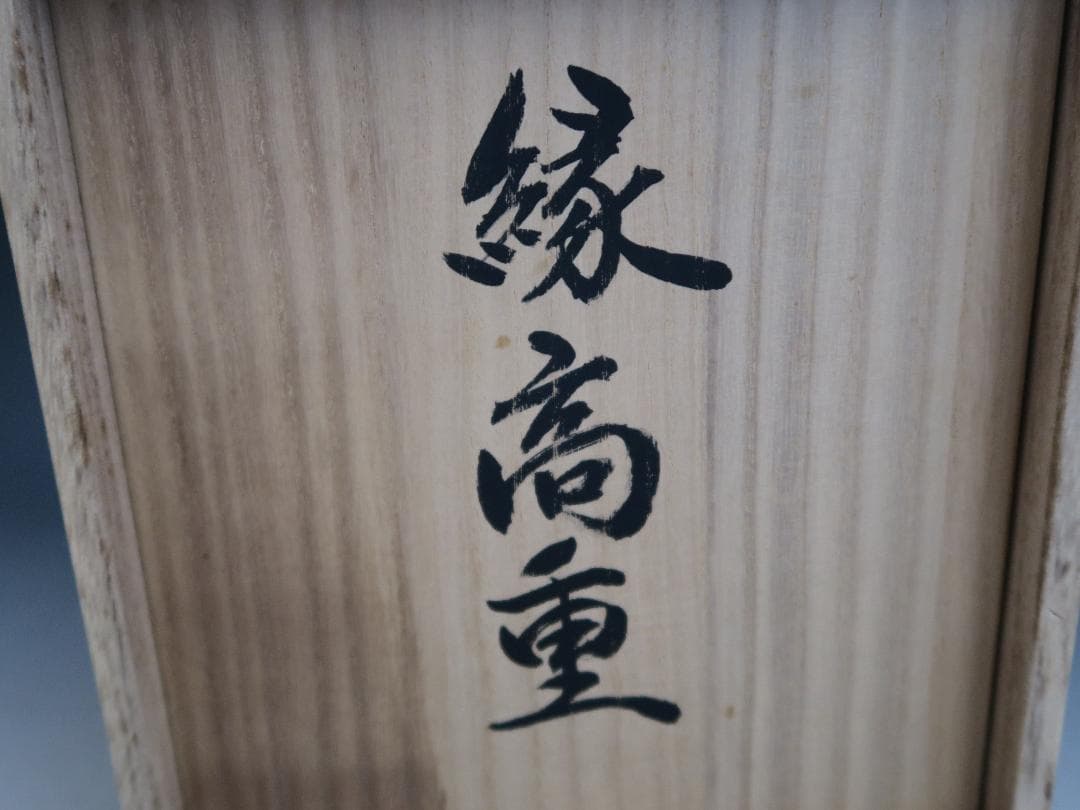 縁高重